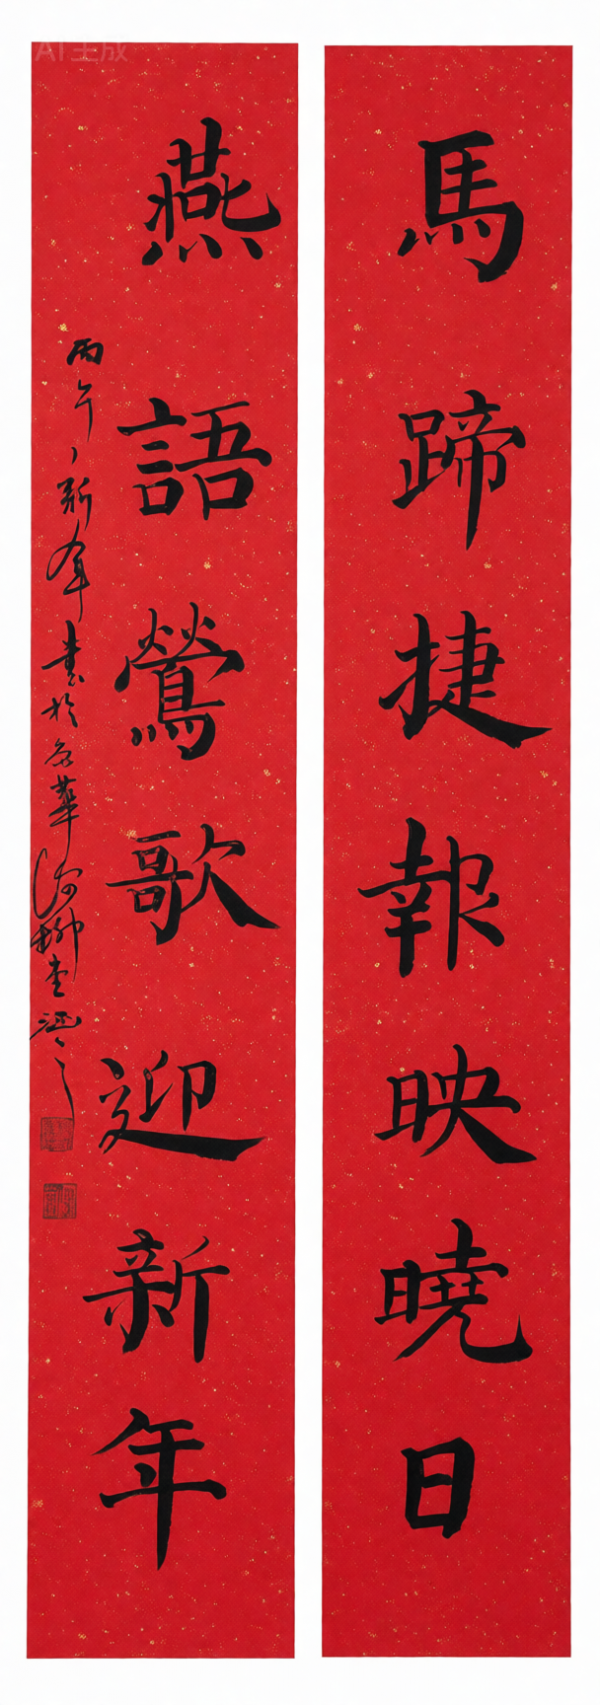 馬蹄捷報映曉日
燕語鶯歌迎新年
丙午新年書於
AI生成